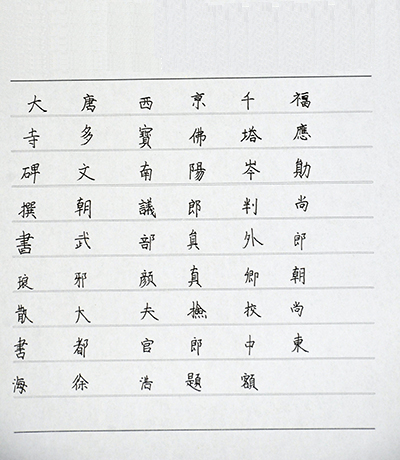 大唐西京千福
寺多寶佛塔應
碑文南陽岑勛
撰朝議郎判尚
書武部員外郎
琅邪顏真卿朝
散大夫檢校尚
書都官郎中東
海徐浩題額